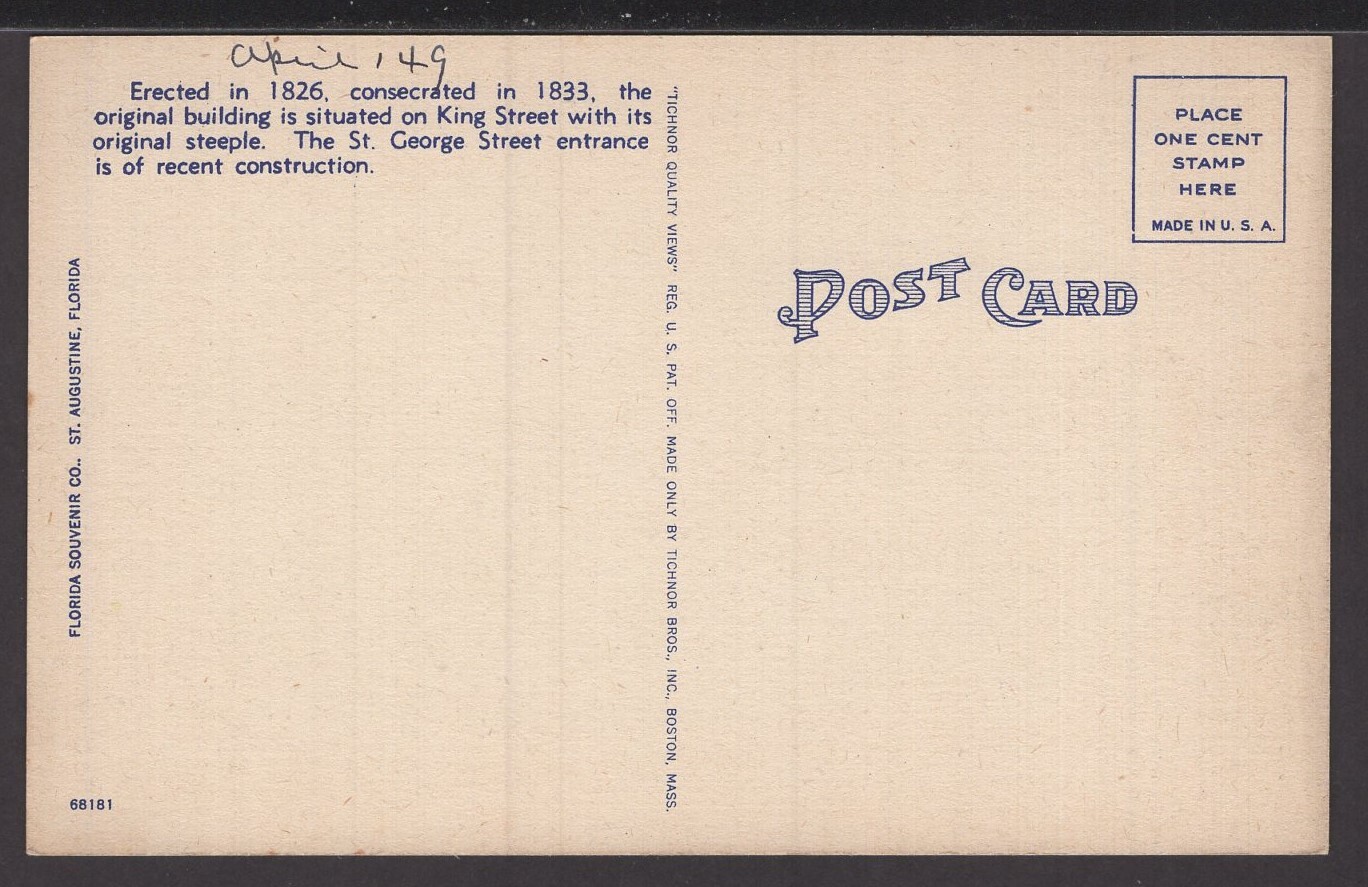 April '49
Erected in 1826, consecrated in 1833, the
original building is situated on King Street with its
original steeple. The St. George Street entrance
is of recent construction.
FLORIDA SOUVENIR CO.. ST. AUGUSTINE, FLORIDA
68181
"TICHNOR QUALITY VIEWS" REG. U. S. PAT. OFF. MADE ONLY BY TICHNOR BROS., INC., BOSTON, MASS.
POST CARD
PLACE
ONE CENT
STAMP
HERE
MADE IN U. S. A.